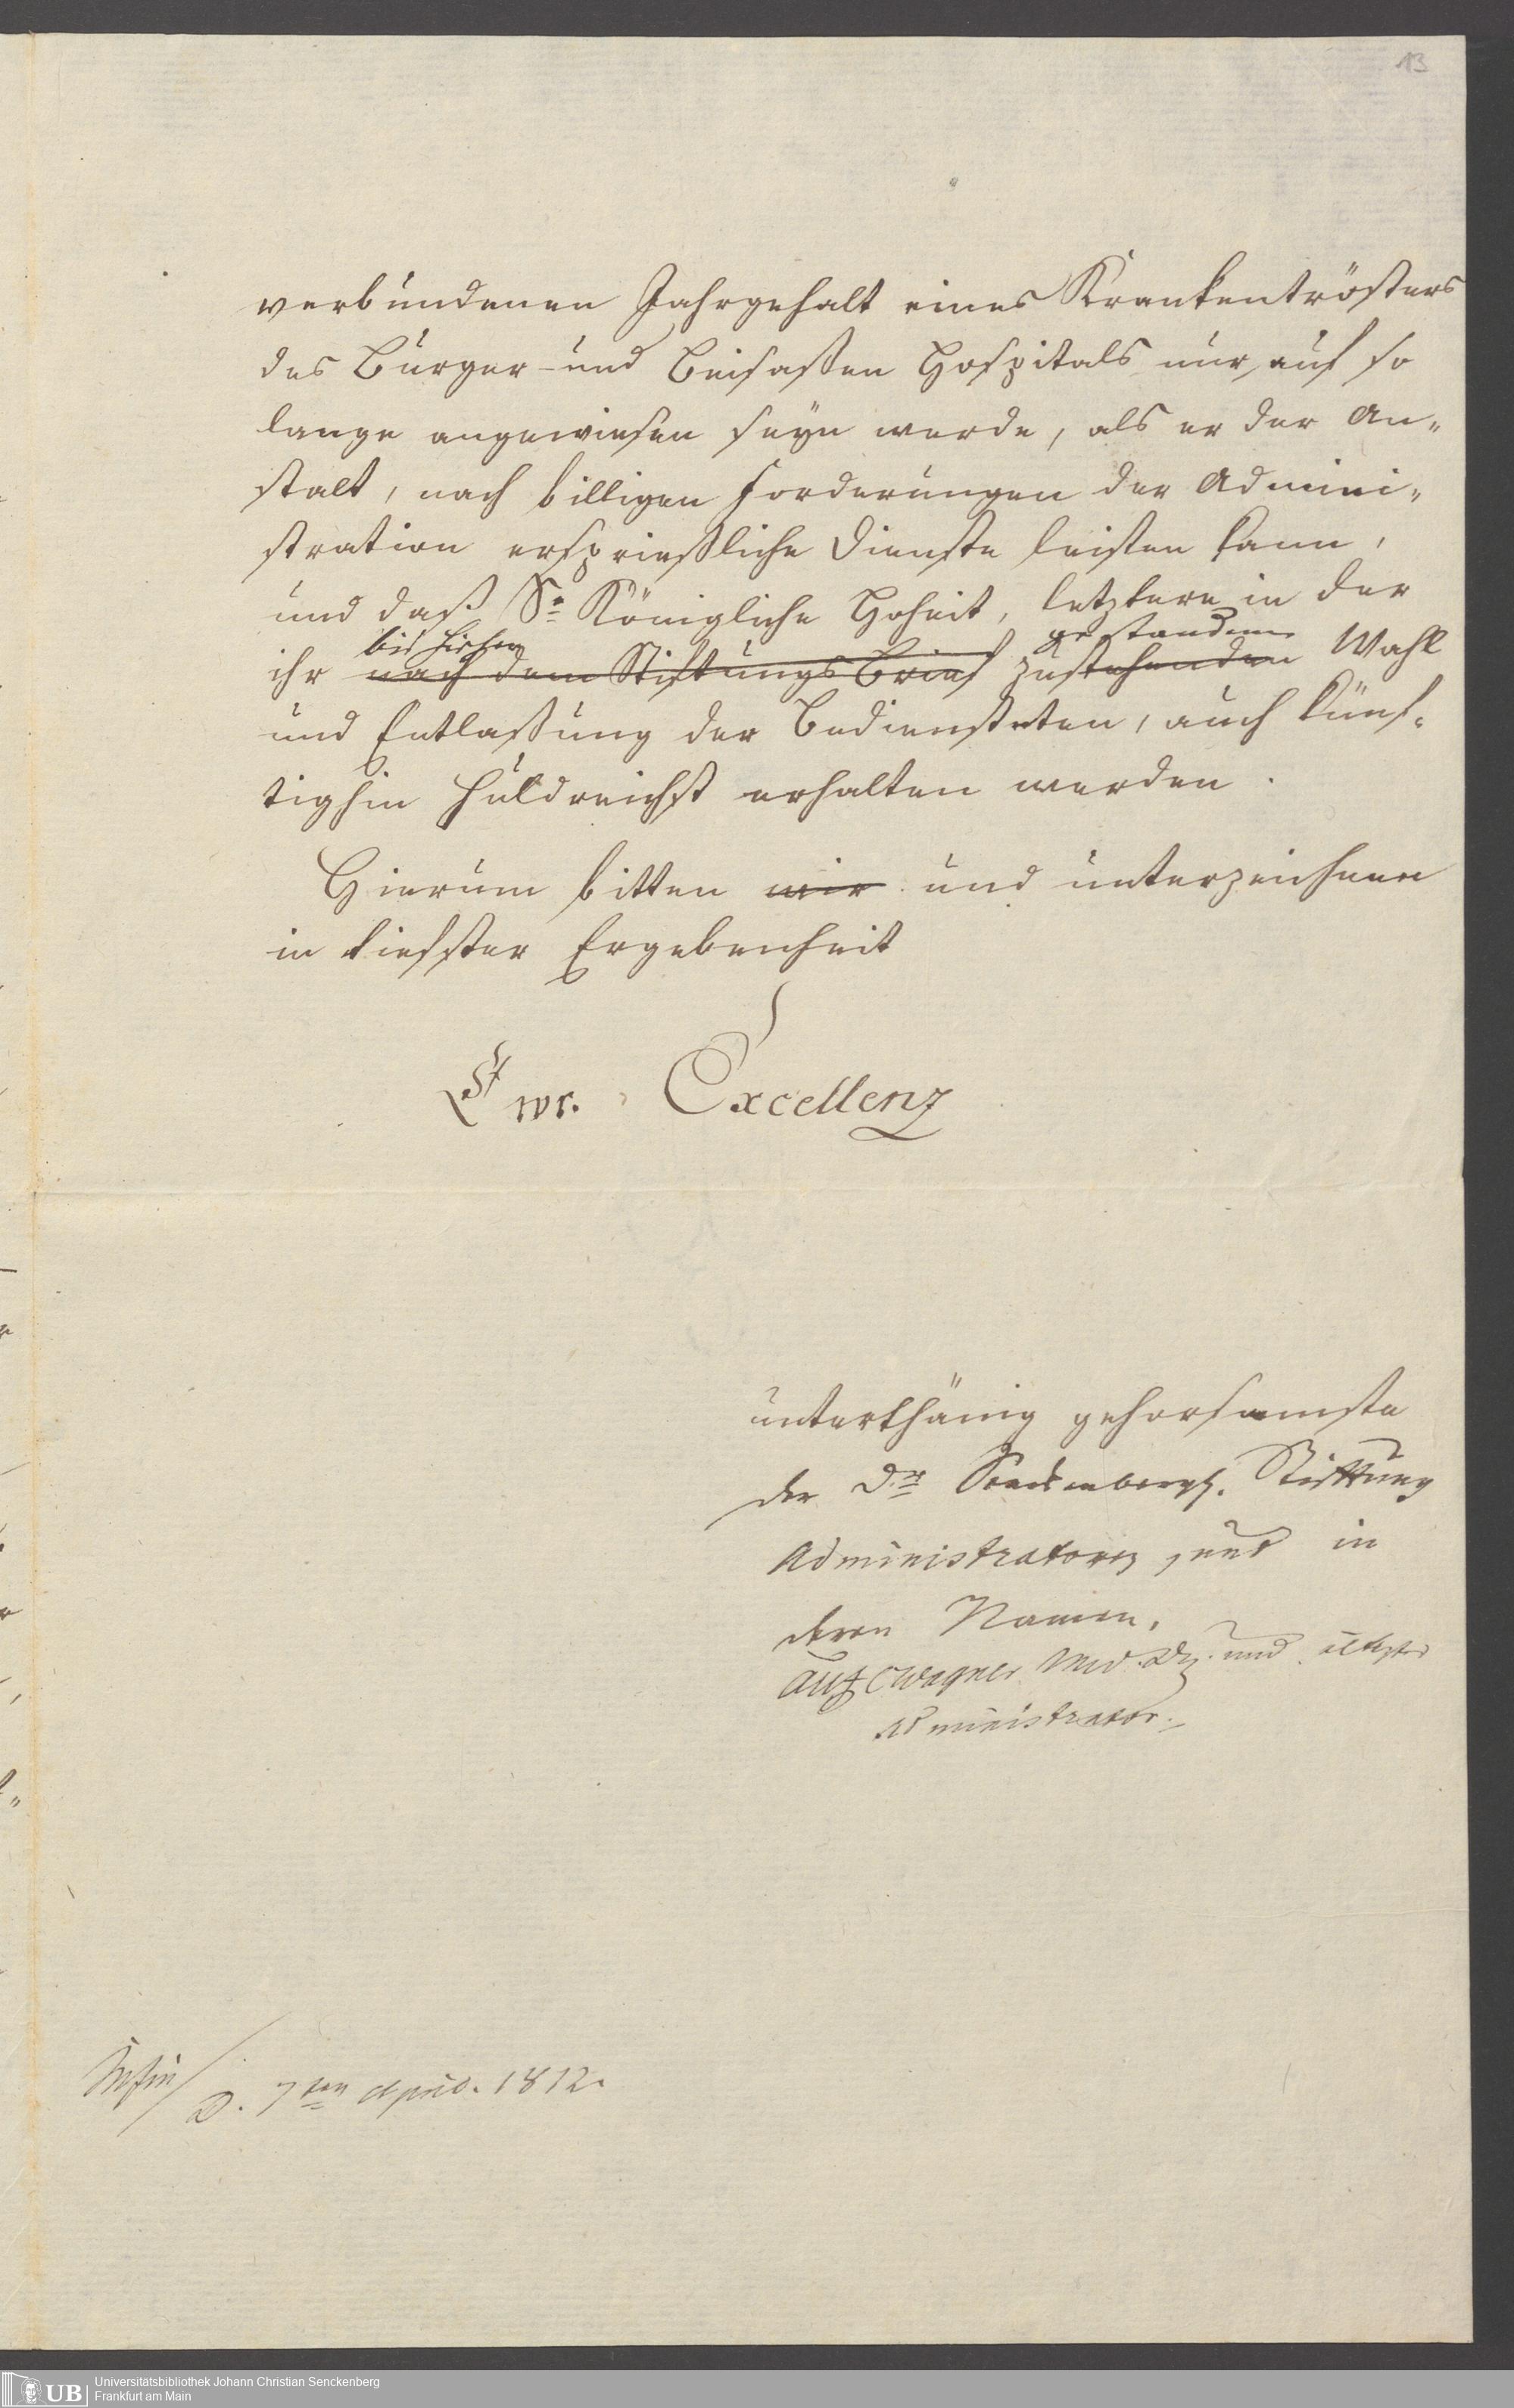 13
verbundenen Jahrgehalt eines Krankentrösters
des Bürger- und Beisaßen Hospitals nur auf so
lange angewiesen seyn werde, als er der An„
stalt, nach billigen Forderungen der Admini„
stration ersprießliche Dienste leisten kann,
und daß Se Königliche Hoheit, letztere in der
bis hieher gestandene
ihr nach dem Stiftungs Brief zustehenden Wahl
und Entlaßung der Bediensteten, auch künf„
tighin huldreichst erhalten werden.
Hierum bitten wir und unterzeichnen
in tiefster Ergebenheit
Ewr. Excellenz
unterthänig gehorsamste
der Dr Senckenbergs. Stiftung
Administratores, und in
deren Namen.
Wagner Med. Dr. und ältester
Administrator.
D. 7ten April. 1812.
Universitätsbibliothek Johann Christian Senckenberg
UB Frankfurt am Main